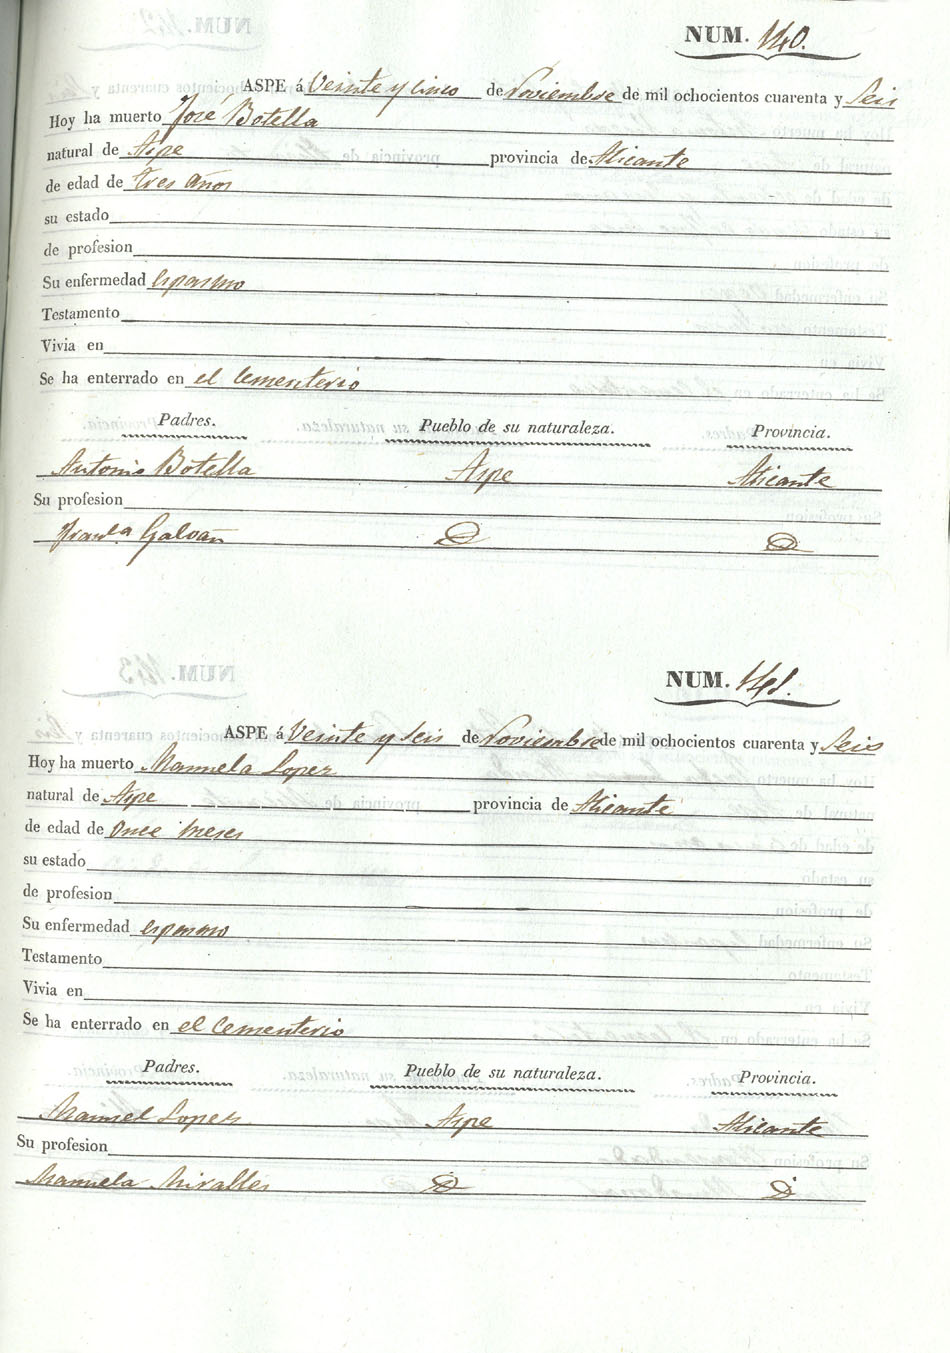 NUM. 140.
ASPE á Veinte y cinco de Noviembre de mil ochocientos cuarenta y Seis
Hoy ha muerto José Botella
natural de Aspe provincia de Alicante
de edad de tres años
su estado
de profesion
Su enfermedad espasmo
Testamento
Vivia en
Se ha enterrado en el Cementerio
Padres. Pueblo de su naturaleza. Provincia.
Antonio Botella Aspe Alicante
Su profesion
Galvañ
NUM. 141.
ASPE á Veinte y Seis de Noviembre de mil ochocientos cuarenta y Seis
Hoy ha muerto Manuela Lopez
natural de Aspe provincia de Alicante
de edad de Once meses
su estado
de profesion
Su enfermedad espasmo
Testamento
Vivia en
Se ha enterrado en el Cementerio
Padres. Pueblo de su naturaleza. Provincia.
Manuel Lopez Aspe Alicante
Su profesion
Manuela Miralles